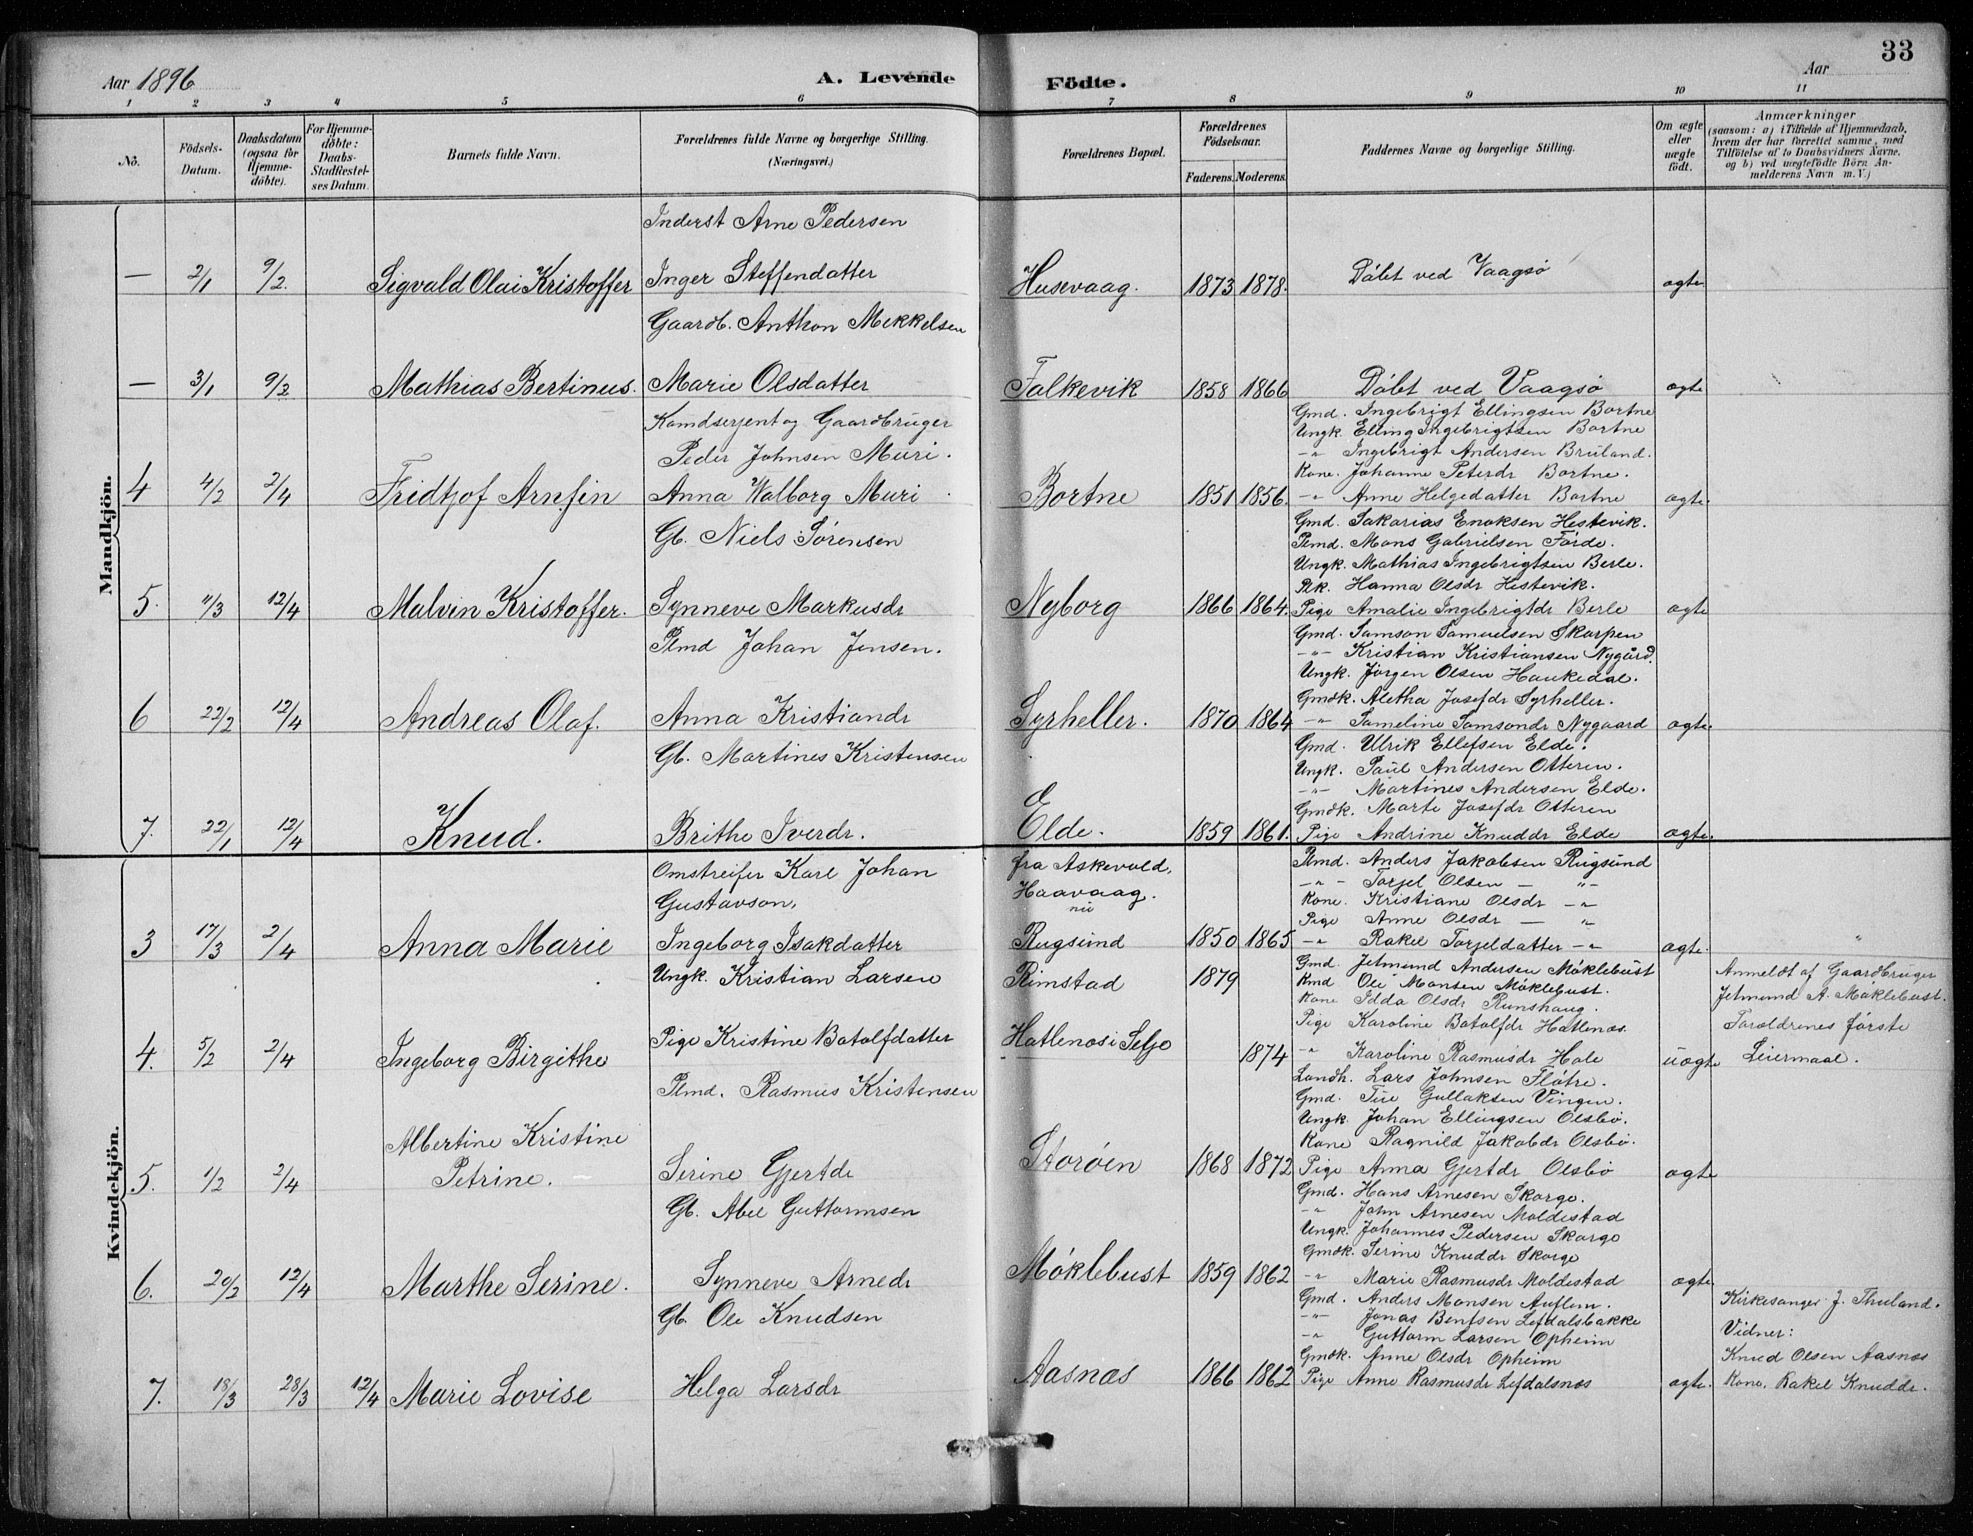 33
Aar 1896
A. Levende
Födte.
Aar
1 2 3 4 5 6 7 8 9 10 11
No.
Födsels-Datum.
Daabsdatum (ogsaa for Hjemme-døbte).
For Hjemme-døbte: Daabs-Stadfæstel-ses Datum.
Barnets fulde Navn.
Forældrenes fulde Navne og borgerlige Stilling. (Næringsvei.)
Forældrenes Bopæl.
Forældrenes Födselsaar.
Faderens. Moderens.
Faddernes Navne og borgerlige Stilling.
Om ægte eller uægte födt.
Anmærkninger
(saasom: a) i Tilfælde af Hjemmedaab, hvem der har forrettet samme, med Tilföielse af to Daabsvidners Navne, og b) ved uægtefödte Börn Anmelderens Navn m. V.)
Mandkjön.
Inderst Arne Pedersen
— 2/1 9/2. Sigvald Olai Kristoffer Inger Steffendatter Husevaag. 1873 1878. Döbt ved Vaagsö ægte
Gaardb. Anthon Mekkelsen
— 3/1 9/2 Mathias Bertinus. Marie Olsdatter Falkevik 1858 1866 Döbt ved Vaagsö ægte
Komdserjent og Gaardbruger
Peder Johnsen Muri.
Gmd. Ingebrigt Ellingsen Bortne
Ungk. Elling Ingebrigtsen Bortne
-"- Ingebrigt Andersen Bruland.
Kone. Johanne Petersdr Bortne.
4 4/2 2/4 Fridtjof Arnfin Anna Walborg Muri Bortne 1851 1856. -"- Anne Helgedatter Bortne ægte.
Gb. Niels Sörensen
Gmd. Sakarias Enoksen Hestevik.
Plmd. Mons Gabrielsen Förde.
Ungk. Mathias Ingebrigtsen Berle.
Pk. Hanna Olsdr Hestevik.
5. 11/3 12/4 Malvin Kristoffer. Synneve Markusdr Nyborg 1866 1864. Pige Amalie Ingebrigtdr Berle ægte
Plmd Johan Jensen.
Gmd. Samson Samuelsen Skorpen
-"- Kristian Kristiansen Nygård.
Ungk. Jörgen Olsen Haukedal.
Gmdk. Aletha Josefdr Syrheller.
6 22/2 12/4 Andreas Olaf. Anna Kristiandr Syrheller. 1870 1864 -"- Sameline Samsondr Nygaard ægte.
Gb. Martines Kristensen
Gmd. Ulrik Ellefsen Elde.
Ungk. Paul Andersen Otteren.
-"- Martines Andersen Elde.
Gmdk. Marte Josefdr Otteren
7. 22/1 12/4 Knud. Brithe Iverdr. Elde. 1859 1861. Pige Andrine Knuddr Elde ægte.
Kvindekjön.
Omstreifer Karl Johan
Gustavson,
fra Askevold,
Haavaag.
nu
Plmd. Anders Jakobsen Rugsund
-"- Torjel Olsen — "-
Kone. Kristiane Olsdr -"
Pige Anne Olsdr — "
3 17/3 2/4 Anna Marie Ingeborg Isakdatter Rugsund 1850 1865 -"- Rakel Torjeldatter -"- ægte.
Ungk. Kristian Larsen Rimstad 1879
Gmd. Jetmund Andersen Möklebust
Kmd Ole Monsen Möklebust.
Kone Idda Olsdr Runshaug.
Pige Karoline Batolfdr Hatlenæs
Anmeldt af Gaardbruger
Jetmund A. Möklebust.
Foroldrenes förste
Leiermaal.
4. 5/2 2/4 Ingeborg Birgithe Pige Kristine Batolfdatter Hatlenæs i Seljo 1874 -"- Karoline Rasmusdr Hole uægte
Plmd. Rasmus Kristensen
Landh. Lars Johnsen Flötre.
Gmd. Tue Gullaksen Vingen.
Ungk. Johan Ellingsen Olsbö.
Kone Ragnild Jakobdr Olsbö.
5. 1/2 2/4 Albertine Kristine Petrine. Serine Gjertdr Storöen 1868 1872 Pige Anna Gjertdr Olsbö ægte
Gb. Abel Guttormsen
Gmd. Hans Arnesen Skorge.
-"- John Arnesen Moldestad
Ungk. Johannes Pedersen Skorge
Gmdk. Serine Knuddr Skorge
6. 20/2 12/4 Marthe Serine. Synneve Arnedr Möklebust 1859 1862 -"- Marie Rasmusdr Moldestad ægte
Gb. Ole Knudsen
Gmd. Anders Monsen Auflem.
-"- Jonas Bentsen Lefdalsbakke
-"- Guttorm Larsen Opheim
Gmdk. Anne Olsdr Opheim
Kirkesanger J. Thuland.
Vidner:
Knud Olsen Aasnæs
Kone. Rakel Knuddr.
7. 18/3 28/3 12/4 Marie Lovise Helga Larsdr Aasnæs 1866 1862 Pige Anne Rasmusdr Lefdalsnæs ægte.